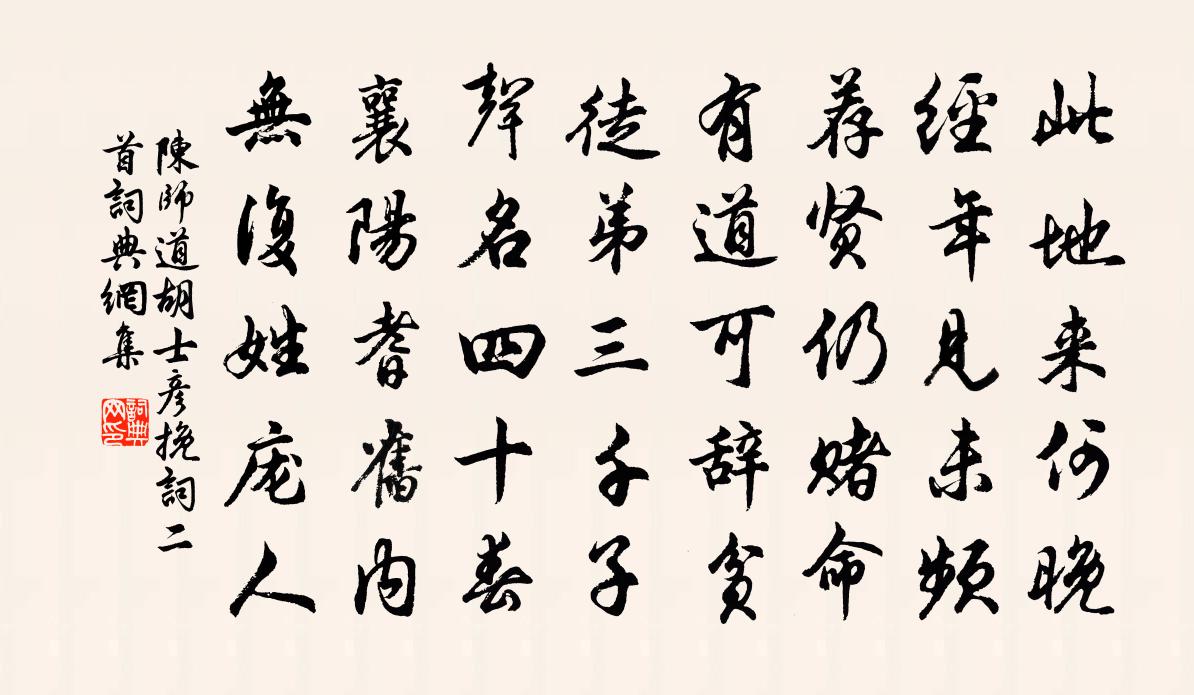 此地来何晚
經年見未頻
荐贤仍赌命
有道可辞贫
徒弟三千子
聲名四十春
襄陽耆舊内
無復姓庞人
陳師道胡士彦挽詞二
首詞典網集
詞典
网印